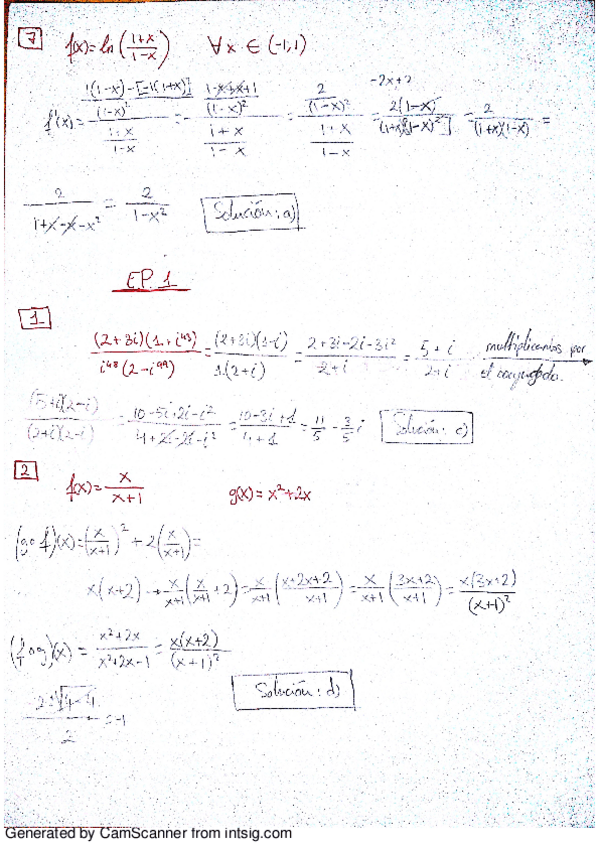 7 f(x)=ln((1+x)/(1-x)) ∀x ∈ (-1,1)
f'(x)= (1(1-x)-[-1(1+x)])/(1-x)² / ((1+x)/(1-x)) = (1-x+x+1)/(1-x)² / ((1+x)/(1-x)) = 2/(1-x)² / ((1+x)/(1-x)) = 2(1-x)/((1+x)(1-x)²) = 2/((1+x)(1-x)) =
2/(1+x-x-x²) = 2/(1-x²) Solución: a)
E.P. 1
1. 
((2+3i)(1+i⁴³))/(i⁴⁸(2-i⁹⁹)) = ((2+3i)(1-i))/(1(2+i)) = (2+3i-2i-3i²)/(2+i) = (5+i)/(2+i) multiplicamos por
el conjugado.
((5+i)(2-i))/((2+i)(2-i)) = (10-5i+2i-i²)/(4+2i-2i-i²) = (10-3i+1)/(4+1) = 11/5 - 3/5 i Solución: c)
2
f(x)= x/(x+1) g(x)= x²+2x
(g∘f)(x)=(x/(x+1))² + 2(x/(x+1))=
x(x+2) → x/(x+1) (x/(x+1) + 2) = x/(x+1) ((x+2x+2)/(x+1)) = x/(x+1) ((3x+2)/(x+1)) = x(3x+2)/(x+1)²
(f∘g)(x) = (x²+2x)/(x²+2x-1) = x(x+2)/(x+1)²
Solución: d)
Generated by CamScanner from intsig.com